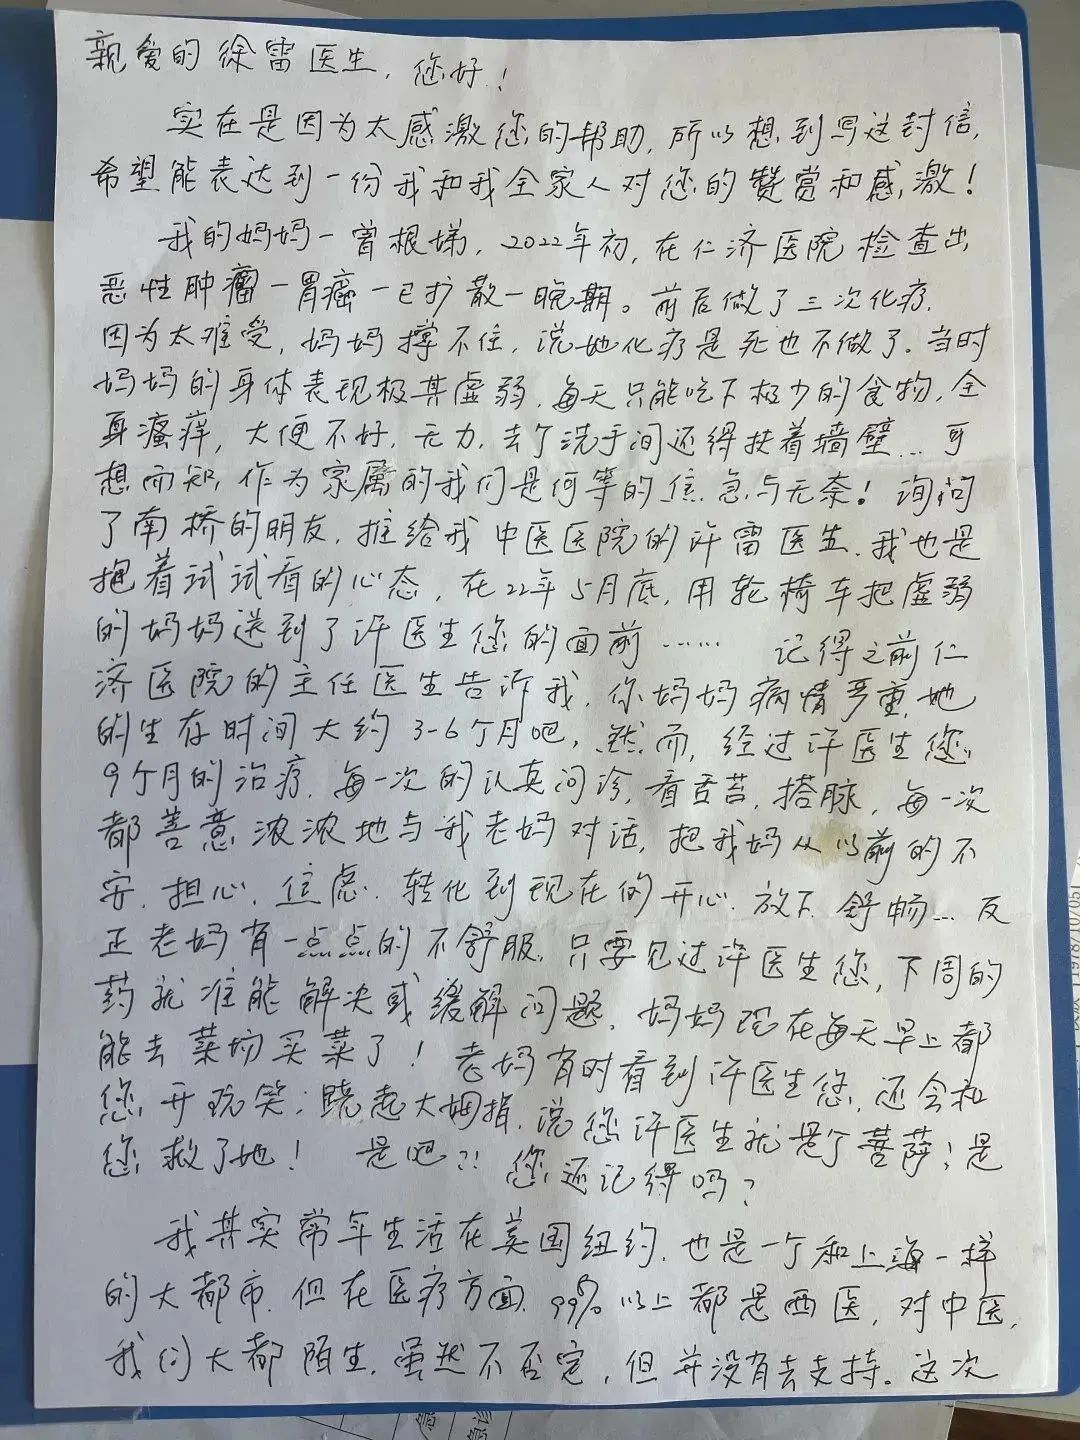 亲爱的徐雷医生，您好！
实在是因为太感激您的帮助，所以想到写这封信，
希望能表达到一份我和我全家人对您的赞赏和感激！
我的妈妈一曾根娣，2022年初，在仁济医院检查出
恶性肿瘤一胃癌一已扩散一晚期。前后做了三次化疗，
因为太难受，妈妈撑不住，说她化疗是死也不做了。当时
妈妈的身体表现极其虚弱，每天只能吃下极少的食物，全
身瘙痒，大便不好，无力，去个洗手间还得扶着墙壁…可
想而知，作为家属的我们是何等的焦急与无奈！询问
了南桥的朋友，推给我中医医院的许雷医生，我也是
抱着试试看的心态，在22年5月底，用轮椅车把虚弱
的妈妈送到了许医生您的面前…… 记得之前仁
济医院的主任医生告诉我，你妈妈病情严重，她
的生存时间大约3-6个月吧，然而，经过许医生您
9个月的治疗，每一次的认真问诊，看舌苔，搭脉，每一次
都善意浓浓地与我老妈对话，把我妈从以前的不
安、担心、焦虑、转化到现在的开心、放下、舒畅…反
正老妈有一点点的不舒服，只要见过许医生您，下周的
药就准能解决或缓解问题，妈妈现在每天早上都
能去菜场买菜了！老妈有时看到许医生您，还会和
您开玩笑；跷起大姆指，说您许医生就是个菩萨；是
您救了她！ 是吧？！您还记得吗？
我其实常年生活在美国纽约，也是一个和上海一样
的大都市，但在医疗方面，99%以上都是西医，对中医，
我们大都陌生，虽然不否定，但并没有去支持。这次
急诊